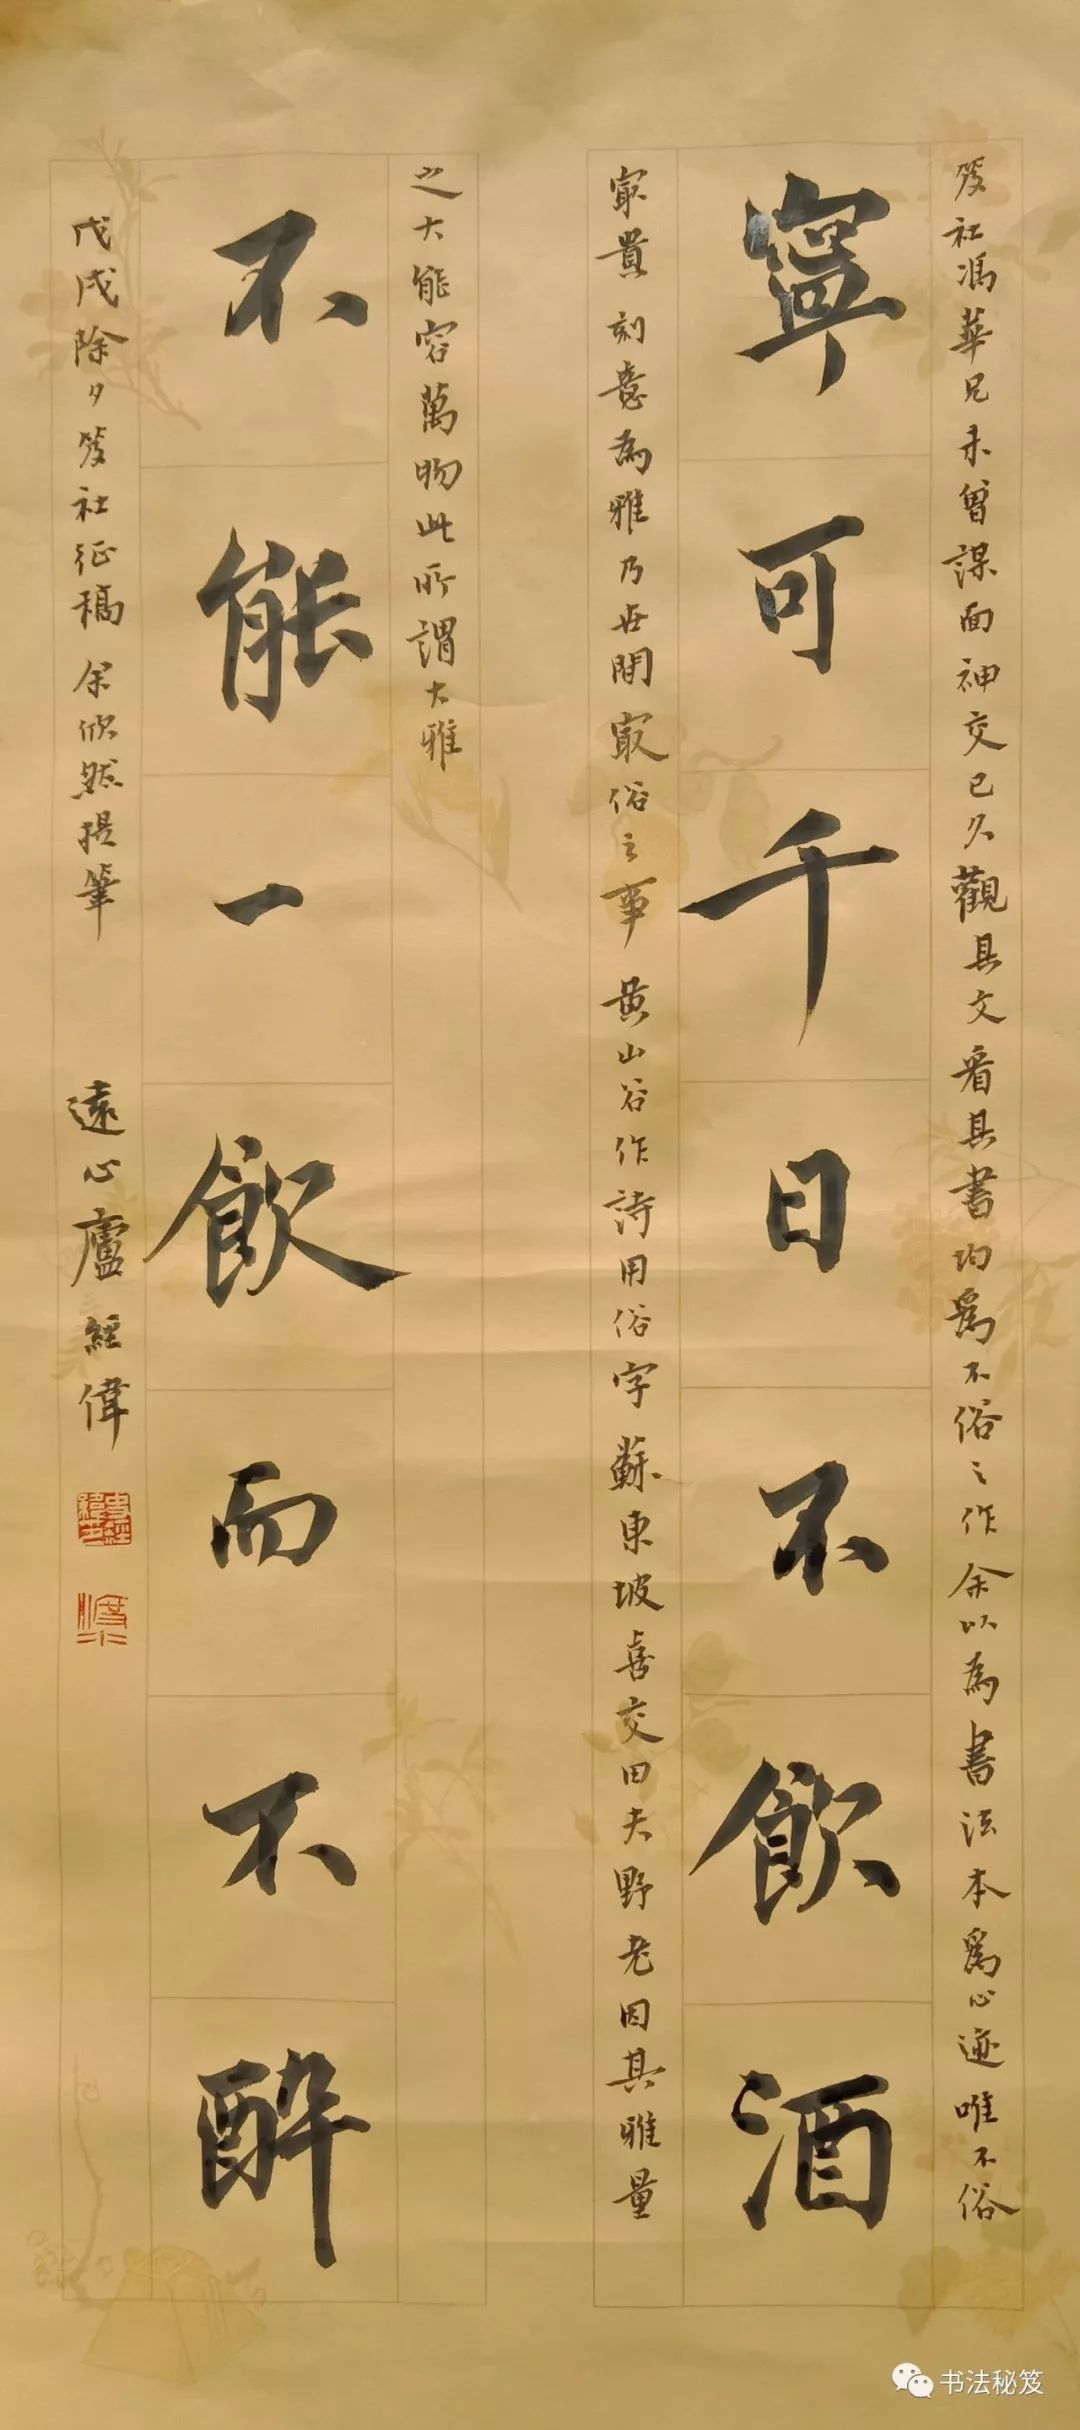 笈社馮華兄未曾謀面神交已久觀其文看其書均爲不俗之作余以為書法本爲心迹唯不俗
寧可千日不飲酒
最貴刻意為雅乃世間最俗之事黄山谷作詩用俗字蘇東坡喜交田夫野老因其雅量
之大能容萬物此所謂大雅
不能一飲而不醉
戊戌除夕笈社征稿余欣然提筆 遠心廬經偉
书法秘笈